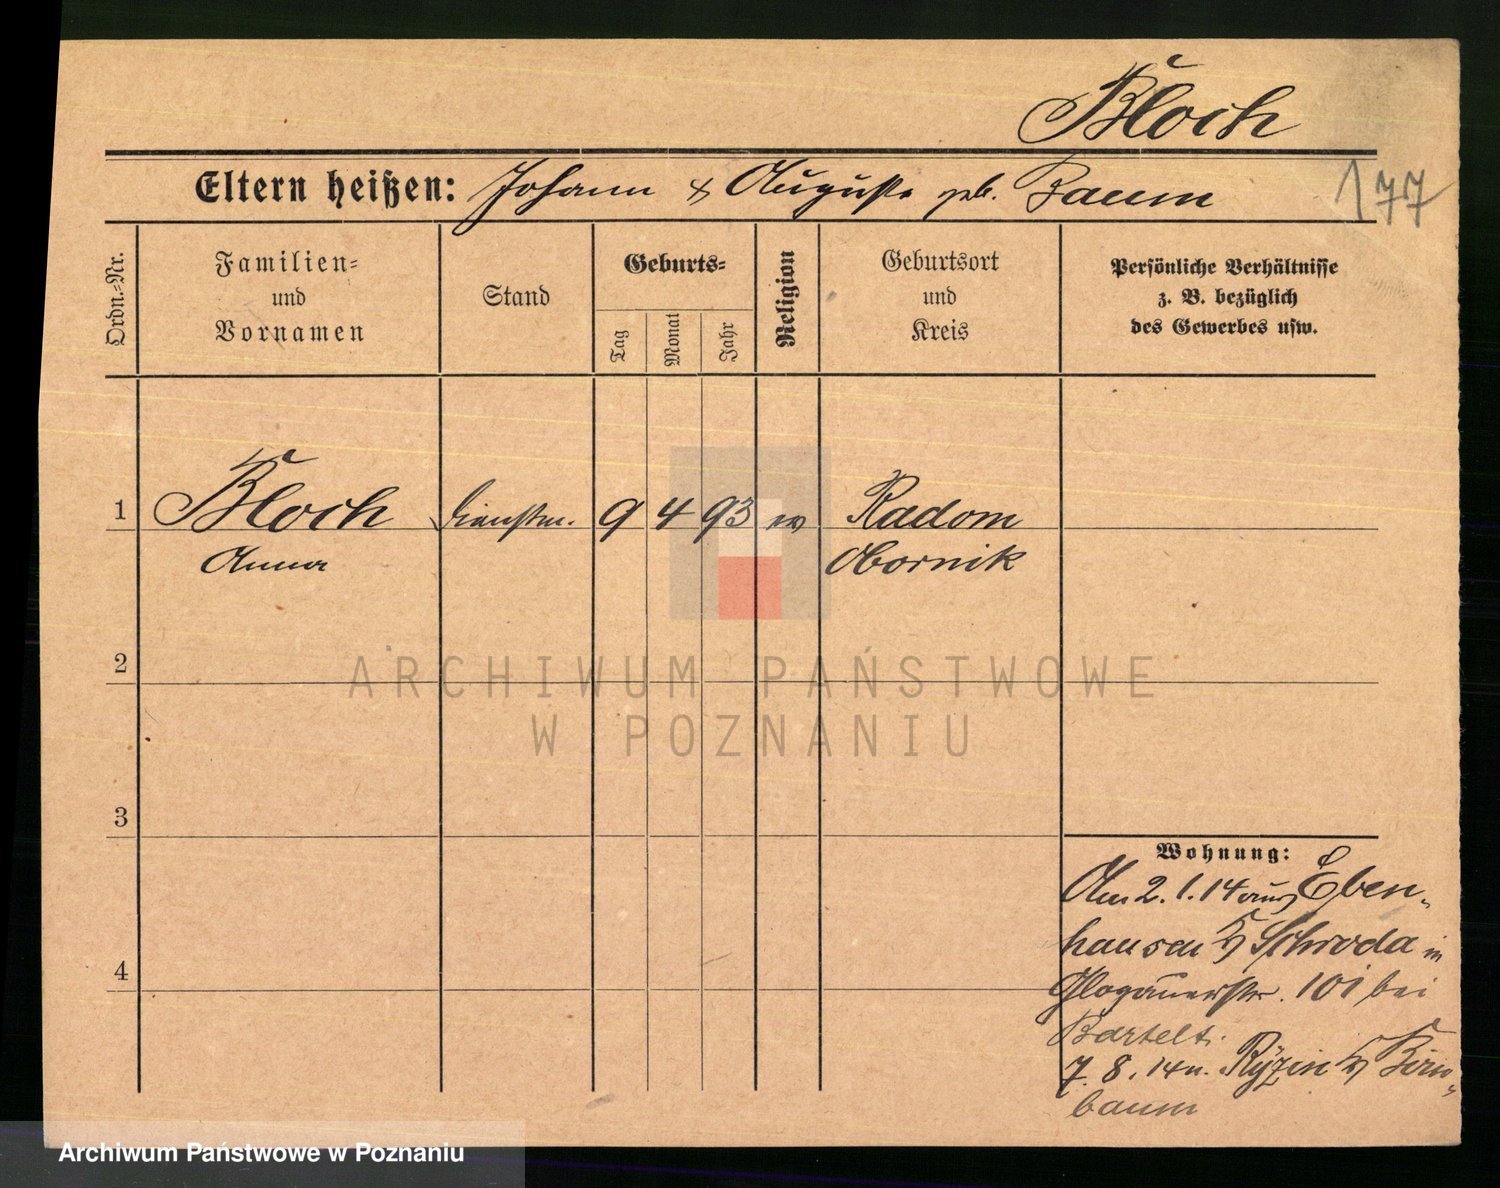 Bloch
Eltern heißen: Johann & Auguste geb. Baum
177
Ordn.-Nr.
Familien-
und
Vornamen
Stand
Geburts-
Tag
Monat
Jahr
Religion
Geburtsort
und
Kreis
Persönliche Verhältnisse
z. B. bezüglich
des Gewerbes usw.
1
Bloch
Anna
Dienstm.
9
4
93
ev
Radom
Obornik
2
ARCHIWUM PAŃSTWOWE
W POZNANIU
3
4
Wohnung:
Am 2.1.14 aus Eben-
hausen Kr Schroda in
Glogauerstr. 101 bei
Bartelt.
7.8.14 n. Ryzin Kr Birn-
baum
Archiwum Państwowe w Poznaniu